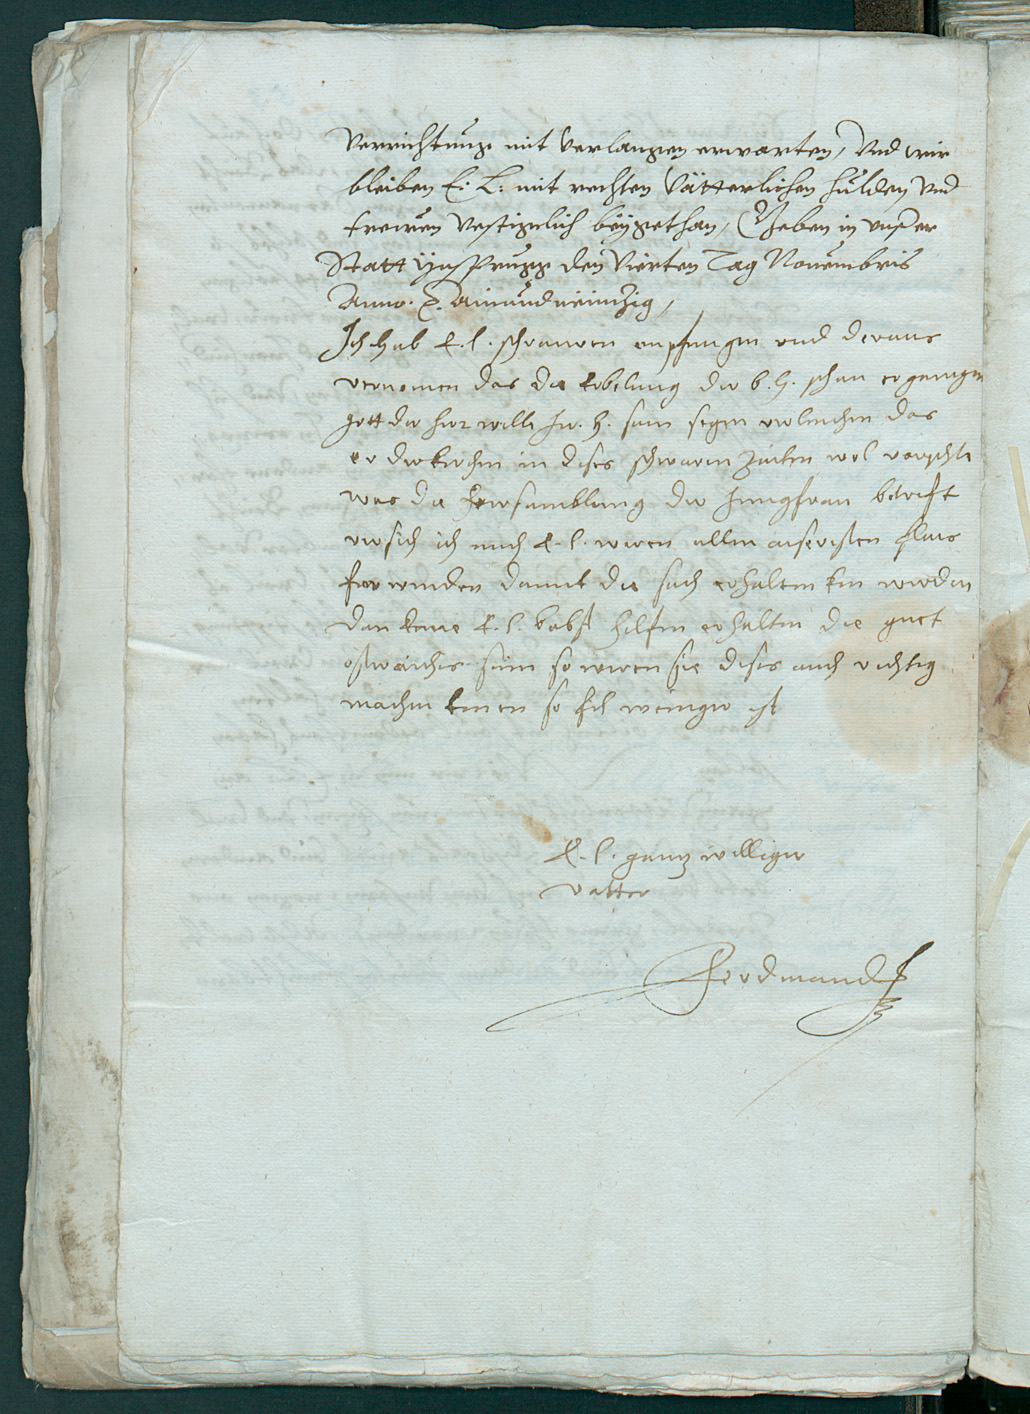 Verrichtung mit verlangen erwarten, Vnd wir
bleiben E: L: mit rechten Vätterlichen hulden vnd
trewen vestigclich beÿgethan, Geben in vnser
Statt Ÿnsprugg den Vierten Tag Nouembris
Anno. &c. Ainundneüntzig,
Ich hab E. l. schraiwen enpfangen vnd deraus
vernomen das die erbelung der b. h. schan ergangen
gott der her welle Ir. h. sein segen verleichen das
er der kirchen in disen schwaren zeiten wol vorste
was die fersamblung der Jungfrau betrift
versich ich mich E. l. weren allen eiseristen fleis
fierwenden damit die sach erhalten kin werden
dan keine E. l. babst helfen erhalten die guet
osterraichis sein so weren sie dises auch richtig
machen kinen so fil weniger ist
E. l. gantz williger
vatter
Ferdinand